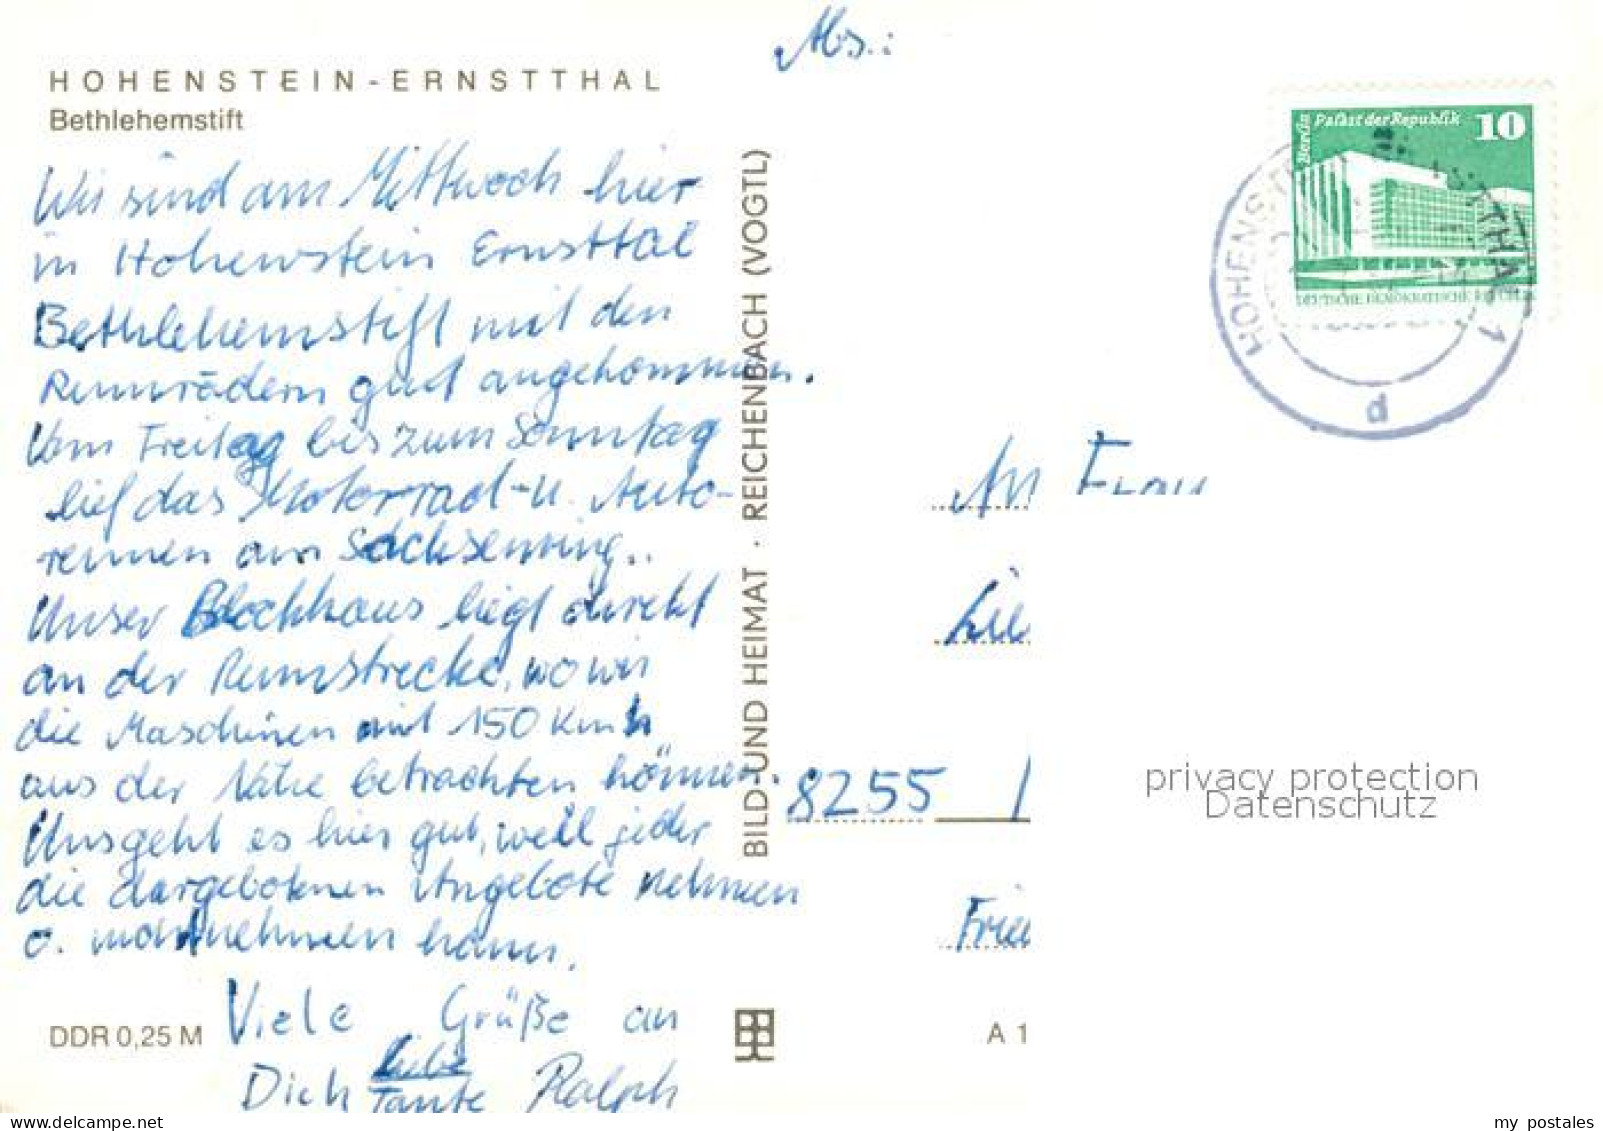 Abs.:
HOHENSTEIN-ERNSTTHAL
Bethlehemstift
Wir sind am Mittwoch hier
in Hohenstein Ernsttal
Bethlehemstift mit den
Rennrädern gut angekommen.
Vom Freitag bis zum Sonntag
lief das Motorrad- u. Auto-
rennen am Sachsenring..
Unser Blockhaus liegt direkt
an der Rennstrecke, wo wir
die Maschinen mit 150 Km h
aus der Nähe betrachten können.
Uns geht es hier gut, weil jeder
die dargebotenen Angebote nehmen
o. wahrnehmen kann.
Viele Grüße an
Dich liebe
Tante Ralph
DDR 0,25 M
BILD UND HEIMAT · REICHENBACH (VOGTL)
Berlin Palast der Republik 10
DEUTSCHE DEMOKRATISCHE REPUBLIK
HOHENSTEIN-ERNSTTHAL 1
d
An Frau
8255
A 1
privacy protection
Datenschutz
www.delcampe.net
my_postales